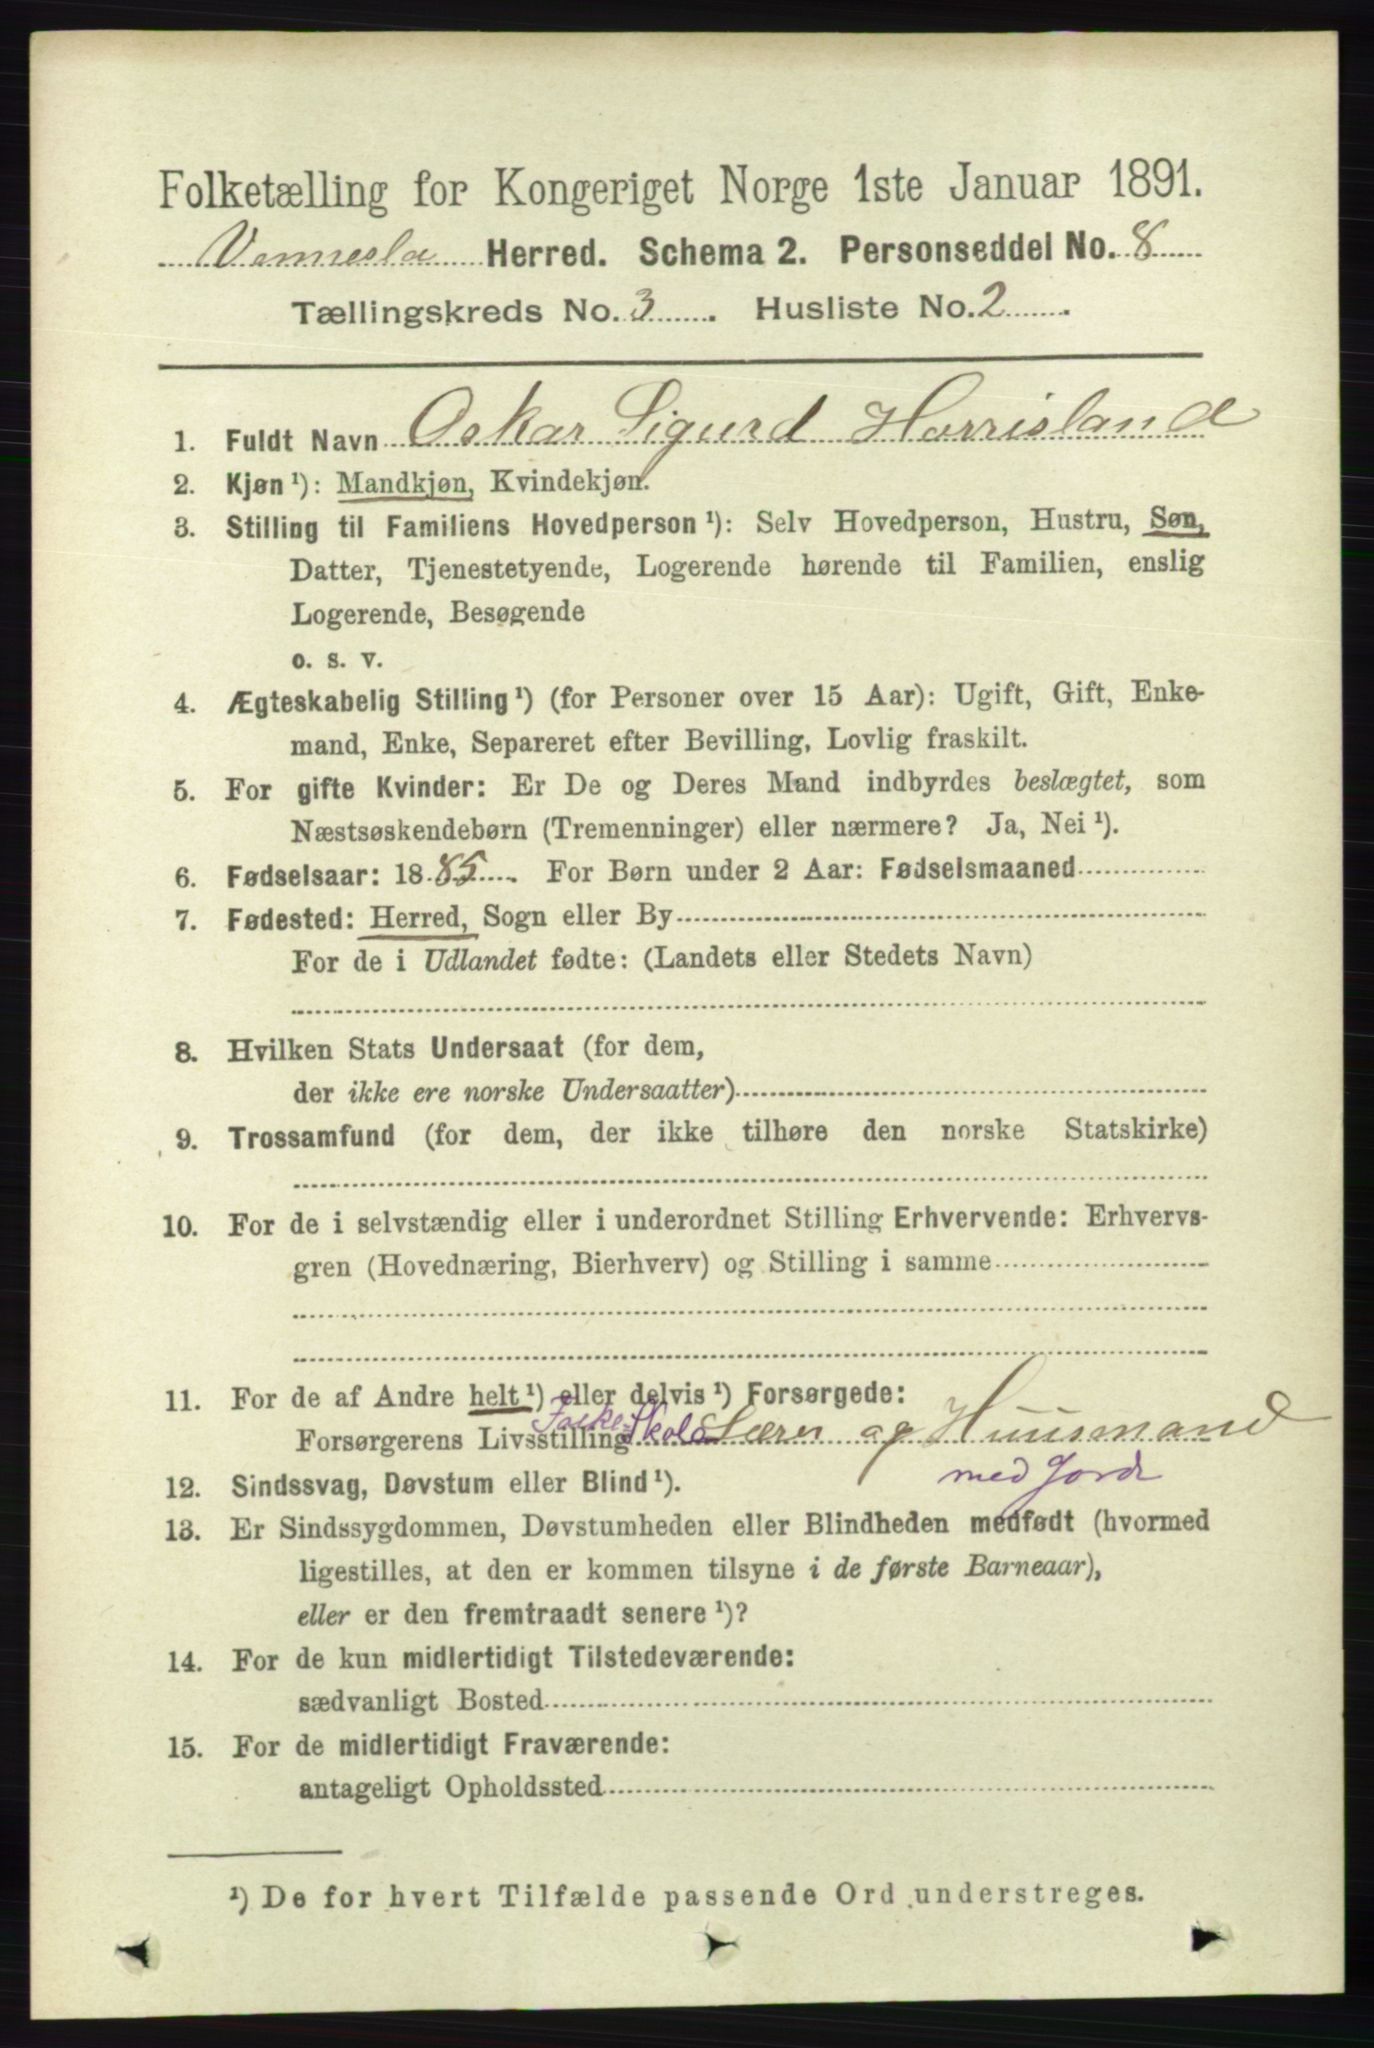 Folketælling for Kongeriget Norge 1ste Januar 1891.
Vennesla Herred. Schema 2. Personseddel No. 8
Tællingskreds No. 3. Husliste No. 2.
1. Fuldt Navn Oskar Sigurd Horrisland
2. Kjøn ¹): Mandkjøn, Kvindekjøn.
3. Stilling til Familiens Hovedperson ¹): Selv Hovedperson, Hustru, Søn,
Datter, Tjenestetyende, Logerende hørende til Familien, enslig
Logerende, Besøgende
o. s. v.
4. Ægteskabelig Stilling ¹) (for Personer over 15 Aar): Ugift, Gift, Enke-
mand, Enke, Separeret efter Bevilling, Lovlig fraskilt.
5. For gifte Kvinder: Er De og Deres Mand indbyrdes beslægtet, som
Næstsøskendebørn (Tremenninger) eller nærmere? Ja, Nei ¹).
6. Fødselsaar: 1885. For Børn under 2 Aar: Fødselsmaaned
7. Fødested: Herred, Sogn eller By
For de i Udlandet fødte: (Landets eller Stedets Navn)
8. Hvilken Stats Undersaat (for dem,
der ikke ere norske Undersaatter)
9. Trossamfund (for dem, der ikke tilhøre den norske Statskirke)
10. For de i selvstændig eller i underordnet Stilling Erhvervende: Erhvervs-
gren (Hovednæring, Bierhverv) og Stilling i samme
11. For de af Andre helt ¹) eller delvis ¹) Forsørgede:
Forsørgerens Livsstilling Folkeskole Lærer og Huusmand
med Jord
12. Sindssvag, Døvstum eller Blind ¹).
13. Er Sindssygdommen, Døvstumheden eller Blindheden medfødt (hvormed
ligestilles, at den er kommen tilsyne i de første Barneaar),
eller er den fremtraadt senere ¹)?
14. For de kun midlertidigt Tilstedeværende:
sædvanligt Bosted
15. For de midlertidigt Fraværende:
antageligt Opholdssted
¹) De for hvert Tilfælde passende Ord understreges.